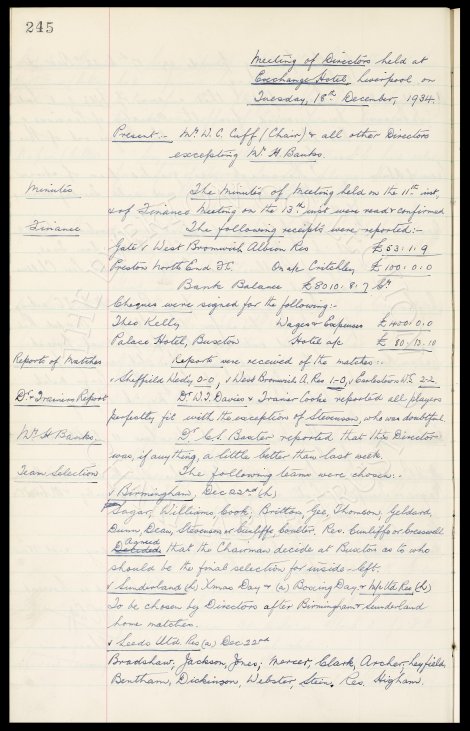 245
Meeting of Directors held at
Exchange Hotel, Liverpool on
Tuesday, 18th December, 1934.
Present:- Mr W. C. Cuff (Chair) & all other Directors
excepting Mr H. Banks.
Minutes
The Minutes of Meeting held on the 11th inst,
& of Finance Meeting on the 13th inst were read & confirmed
Finance
The following receipts were reported:-
Gate v West Bromwich Albion Res £53. 1. 9
Preston North End F.C. On a/c Critchley £100. 0. 0
Bank Balance £8010. 8. 7 Cr.
Cheques were signed for the following:-
Theo Kelly Wages & Expenses £400. 0. 0
Palace Hotel, Buxton Hotel a/c £80. 13. 10
Reports of Matches
Reports were received of the matches:-
v Sheffield Wedy 0-0, v West Bromwich A. Res 1-0, v 2-2.
Dr & Trainers Report
Dr. W. J. Davies & Trainer Cooke reported all players
perfectly fit with the exception of Stevenson, who was doubtful.
Mr H. Banks.
Dr. C. S. Baxter reported that this Director
was, if anything, a little better than last week.
Team Selection
The following teams were chosen:-
v Birmingham, Dec 22nd (h)
Sagar, Williams, Cook, Britton, Gee, Thomson, Geldard,
Dunn, Dean, Stevenson or Cunliffe, Coulter, Res. Cunliffe or Cresswell
Agreed
Decided that the Chairman decide at Buxton as to who
should be the final selection for inside-left.
v Sunderland (h) Xmas Day & (a) Boxing Day & Utd Res (h)
To be chosen by Directors after Birmingham & Sunderland
home matches.
v Leeds Utd. Res (a) Dec 22nd
Bradshaw, Jackson, Jones; Mercer, Clark, Archer, Leyfield,
Bentham, Dickinson, Webster, Stein. Res. Higham.